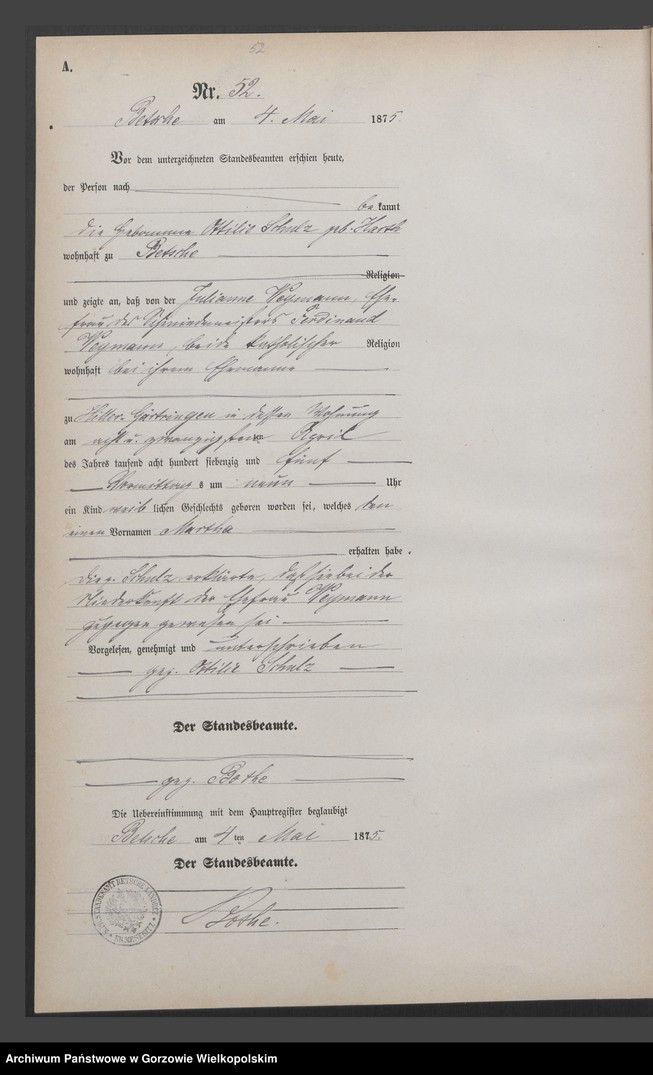 52
A.
Nr. 52.
Betsche am 4. Mai 1875.
Vor dem unterzeichneten Standesbeamten erschien heute,
der Person nach
be kannt
die Hebamme Ottilie Schulz geb. Harth
wohnhaft zu Betsche
Religion
und zeigte an, daß von der Julianne Weymann, Ehe-
frau des Schmiedemeisters Ferdinand
Weymann, beide katholischer Religion
wohnhaft bei ihrem Ehemanne
zu Hiller-Gärtringen in dessen Wohnung
am acht u. zwanzigsten April
des Jahres tausend acht hundert siebenzig und fünf
Vormittag s um neun Uhr
ein Kind weib lichen Geschlechts geboren worden sei, welches den
einen Vornamen Martha
erhalten habe.
Die Schulz erklärte, daß sie bei der
Niederkunft der Ehefrau Weymann
zugegen gewesen sei
Vorgelesen, genehmigt und unterschrieben
gez. Ottilie Schulz
Der Standesbeamte.
gez. Bothe
Die Uebereinstimmung mit dem Hauptregister beglaubigt
Betsche am 4 ten Mai 1875.
Der Standesbeamte.
Bothe.
Archiwum Państwowe w Gorzowie Wielkopolskim